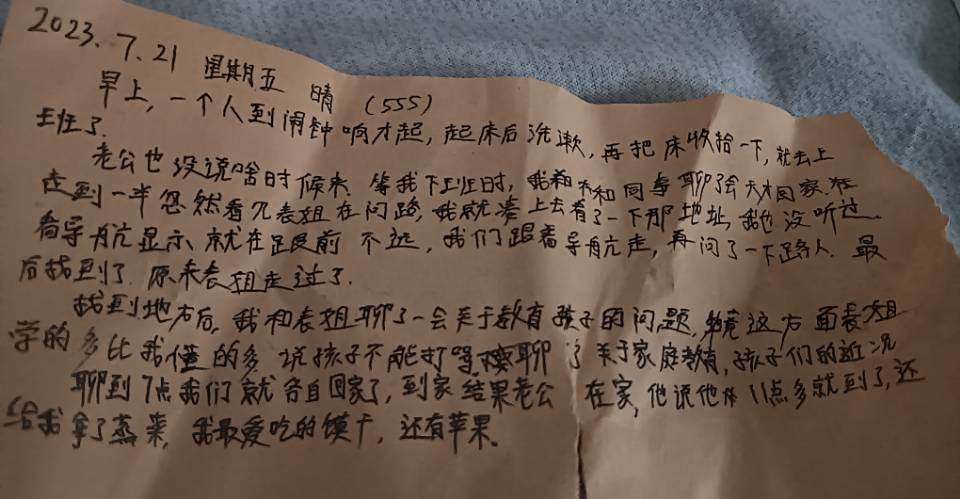 2023.7.21 星期五 晴 (555)
早上，一个人到闹钟响才起，起床后洗漱，再把床收拾一下，就去上
班了.
老公也没说啥时候来. 等我下班时，我和同事聊了会才回家.在
走到一半忽然看见表姐在问路，我就凑上去看了一下那地址，我也没听过.
看导航显示就在跟前不远，我们跟着导航走，再问了一下路人.最
后找到了.原来表姐走过了.
找到地方后，我和表姐聊了一会关于教育孩子的问题，毕竟这方面表姐
学的多比我懂的多，说孩子不能打骂聊了关于家庭教育，孩子们的近况
聊到7点我们就各自回家了，到家结果老公在家，他说他11点多就到了，还
给我拿了蒸菜，我最爱吃的馍干，还有苹果。